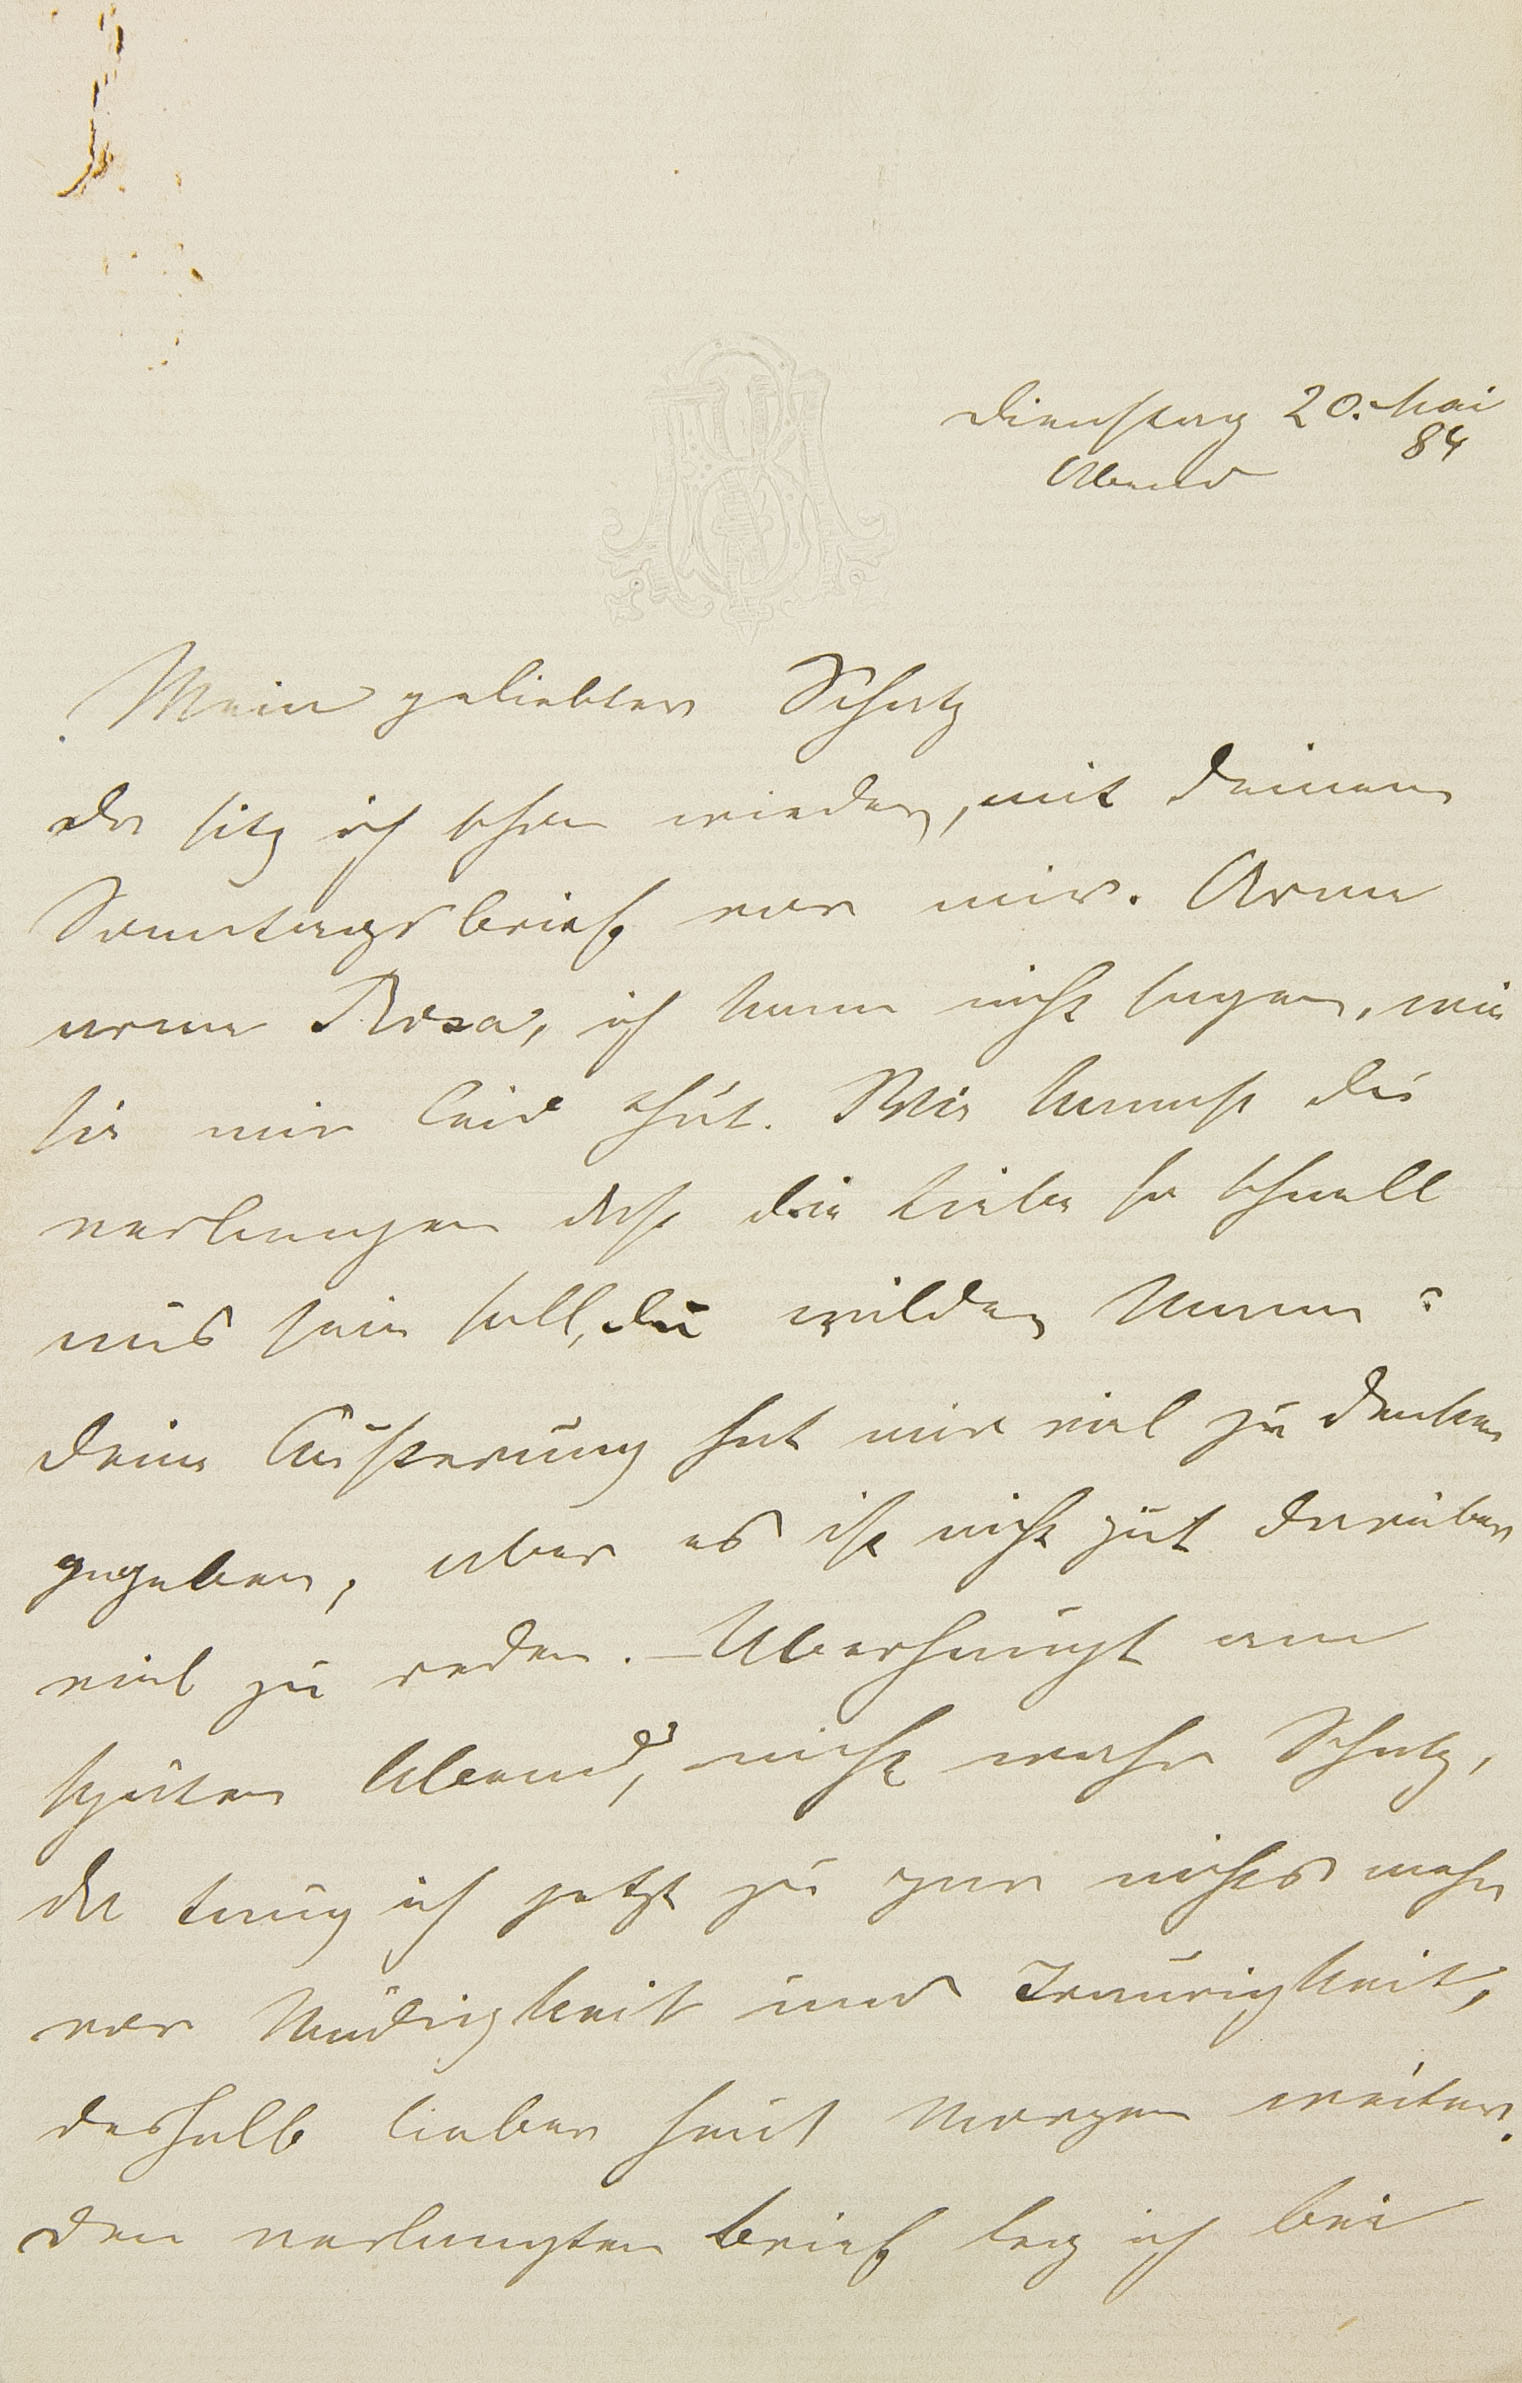 Dienstag 20. Mai
84
Abend
Mein geliebter Schatz
Da sitz ich schon wieder, mit Deinem
Sonntagsbrief vor mir. Arme
arme Rosa, ich kann nicht sagen, wie
sie mir leid thut. Wie kannst Du
verlangen daß die Liebe so schnell
aus sein soll, Du wilder Mann?
Deine Äußerung hat mir viel zu denken
gegeben, aber es ist nicht gut darüber
viel zu reden. – Überhaupt am
späten Abend, nicht wahr Schatz,
da taug ich jetzt zu gar nichts mehr
vor Müdigkeit und Traurigkeit,
deshalb lieber heut Morgen weiter.
Den verlangten Brief leg ich bei